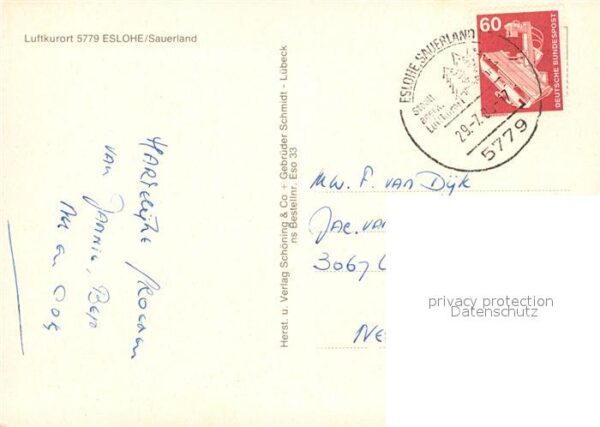 Luftkurort 5779 ESLOHE/Sauerland
HARTelijke GROETEN
van JANNIE,
Herst. u. Verlag Schöning & Co + Gebrüder Schmidt - Lübeck
ns Bestellnr. Eso 33
ESLOHE, SAUERLAND
Luftkurort
29.-7.
5779
60
DEUTSCHE BUNDESPOST
MW. F. VAN DijK
JAC. VAN
3067
NE
privacy protection
Datenschutz